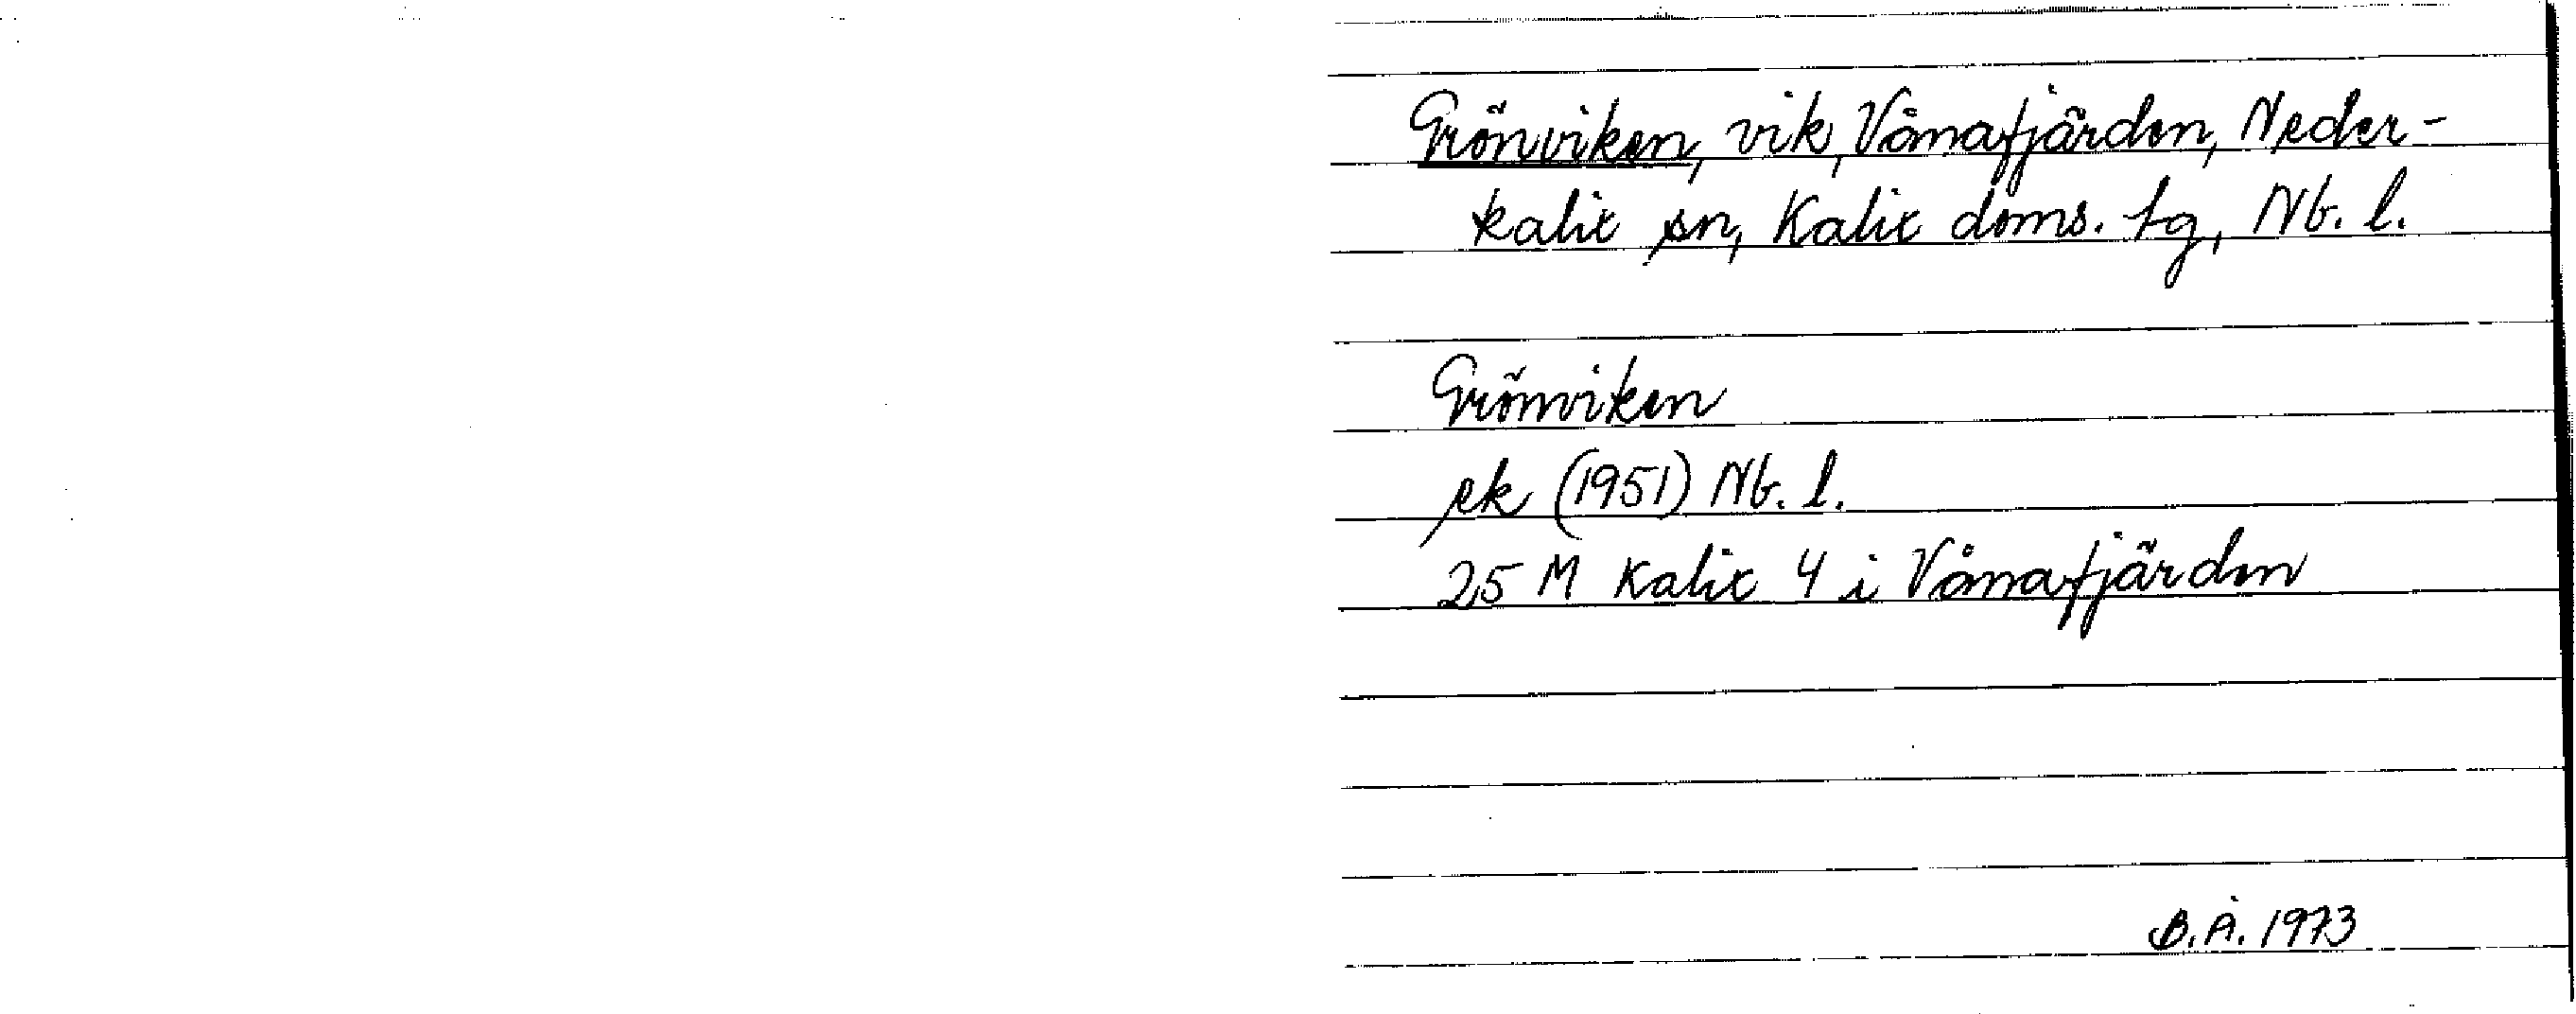 Grönviken, vik, Vånafjärden, Neder-
kalix sn, Kalix doms. tg, Nb. l.
Grönviken
ek (1951) Nb. l.
25 M Kalix 4 i Vånafjärden
B.Å. 1973